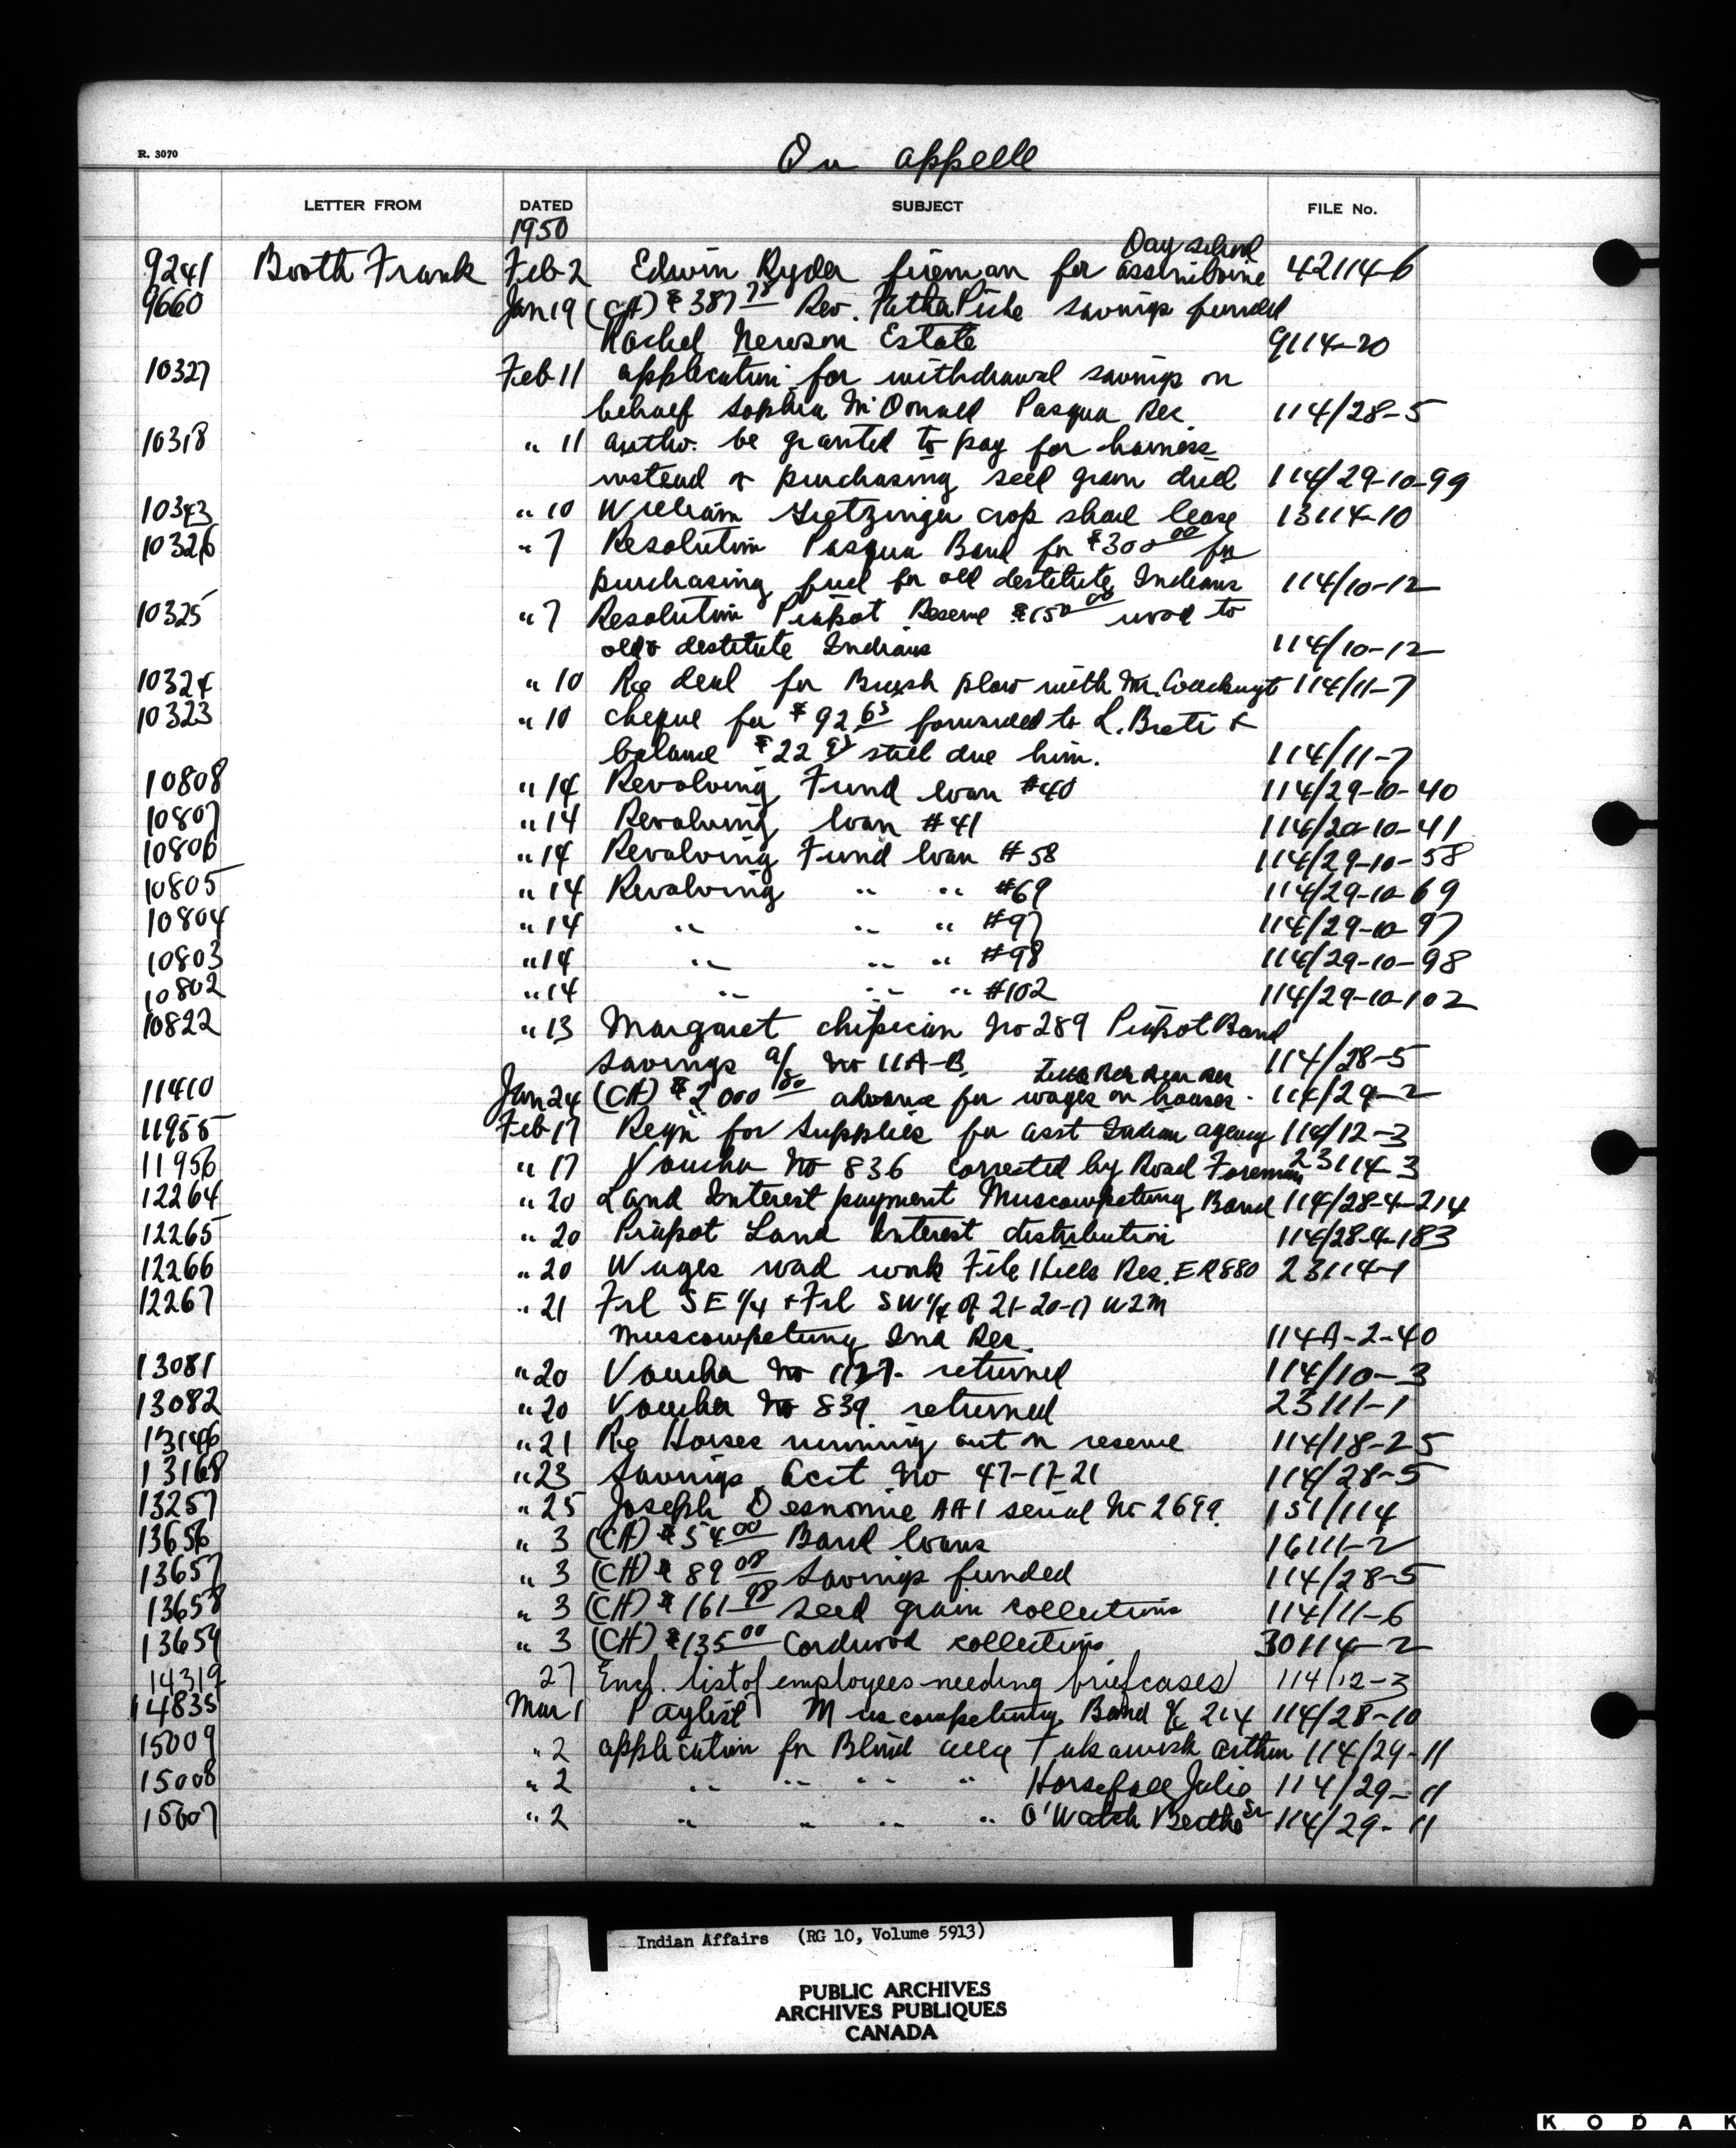 R. 3070
Qu appelle
LETTER FROM DATED SUBJECT FILE No.
1950
Day school
9241 Booth Frank Feb 2 Edwin Ryder fireman for assiniboine 42114-6
9660 Jan 19 (CH) $387 Rev. Father Piche savings funded
Rachel Newson Estate 9114-20
10327 Feb 11 application for withdrawal savings on
behalf Sophia McDonald Pasqua Res. 114/28-5
10318 " 11 autho. be granted to pay for harness
instead of purchasing seed grain drill 114/29-10-99
10343 " 10 William crop share lease 13114-10
10326 " 7 Resolution Pasqua Band for $300 00 for
purchasing fuel for old destitute Indians 114/10-12
10325 " 7 Resolution Piapot Reserve $150 00 wood to
old & destitute Indians 114/10-12
10324 " 10 Re deal for Brush plow with Mr. 114/11-7
10323 " 10 cheque for $92 63 forwarded to L. &
balance $22 still due him. 114/11-7
10808 " 14 Revolving Fund loan #40 114/29-10-40
10807 " 14 Revolving loan #41 114/20-10-41
10806 " 14 Revolving Fund loan #58 114/29-10-58
10805 " 14 Revolving " " #69 114/29-10-69
10804 " 14 " " " #97 114/29-10-97
10803 " 14 " " " #98 114/29-10-98
10802 " 14 " " " #102 114/29-10-102
10822 " 13 Margaret Chipecian No 289 Piapot Band
savings a/c No 11A-B. 114/28-5
11410 Jan 24 (CH) $2000 advance for wages on houses. 114/29-2
11955 Feb 17 Reqn for Supplies for asst Indian agency 114/12-3
11956 " 17 Voucher No 836 corrected by Road Foreman 23114-3
12264 " 20 Land Interest payment Muscowpetung Band 114/28-4-214
12265 " 20 Piapot Land Interest distribution 114/28-4-183
12266 " 20 Wages road work File Hills Res. ER880 23114-1
12267 " 21 Frl SE 1/4 & Frl SW 1/4 of 21-20-17 W2M
Muscowpetung Ind Res. 114A-2-40
13081 " 20 Voucher No 1127. returned 114/10-3
13082 " 20 Voucher No 839. returned 23111-1
13146 " 21 Re Horses running out on reserve 114/18-25
13168 " 23 Savings Acct No 47-17-21 114/28-5
13257 " 25 Joseph Desnomie AA1 serial No 2699. 151/114
13656 " 3 (CH) $54 00 Band loans 16111-2
13657 " 3 (CH) $89 08 Savings funded 114/28-5
13658 " 3 (CH) $161 98 seed grain collections 114/11-6
13659 " 3 (CH) $135 00 Cordwood collections 30114-2
14319 27 Encl. list of employees needing briefcases 114/12-3
14835 Mar 1 Paylist Muscowpetung Band a/c 214 114/28-10
15009 " 2 application for Blind allce Takawish Arthur 114/29-11
15008 " 2 " " " " Horseface Julia 114/29-11
15007 " 2 " " " " O'Watch Bertha Sr 114/29-11
Indian Affairs (RG 10, Volume 5913)
PUBLIC ARCHIVES
ARCHIVES PUBLIQUES
CANADA
KODAK